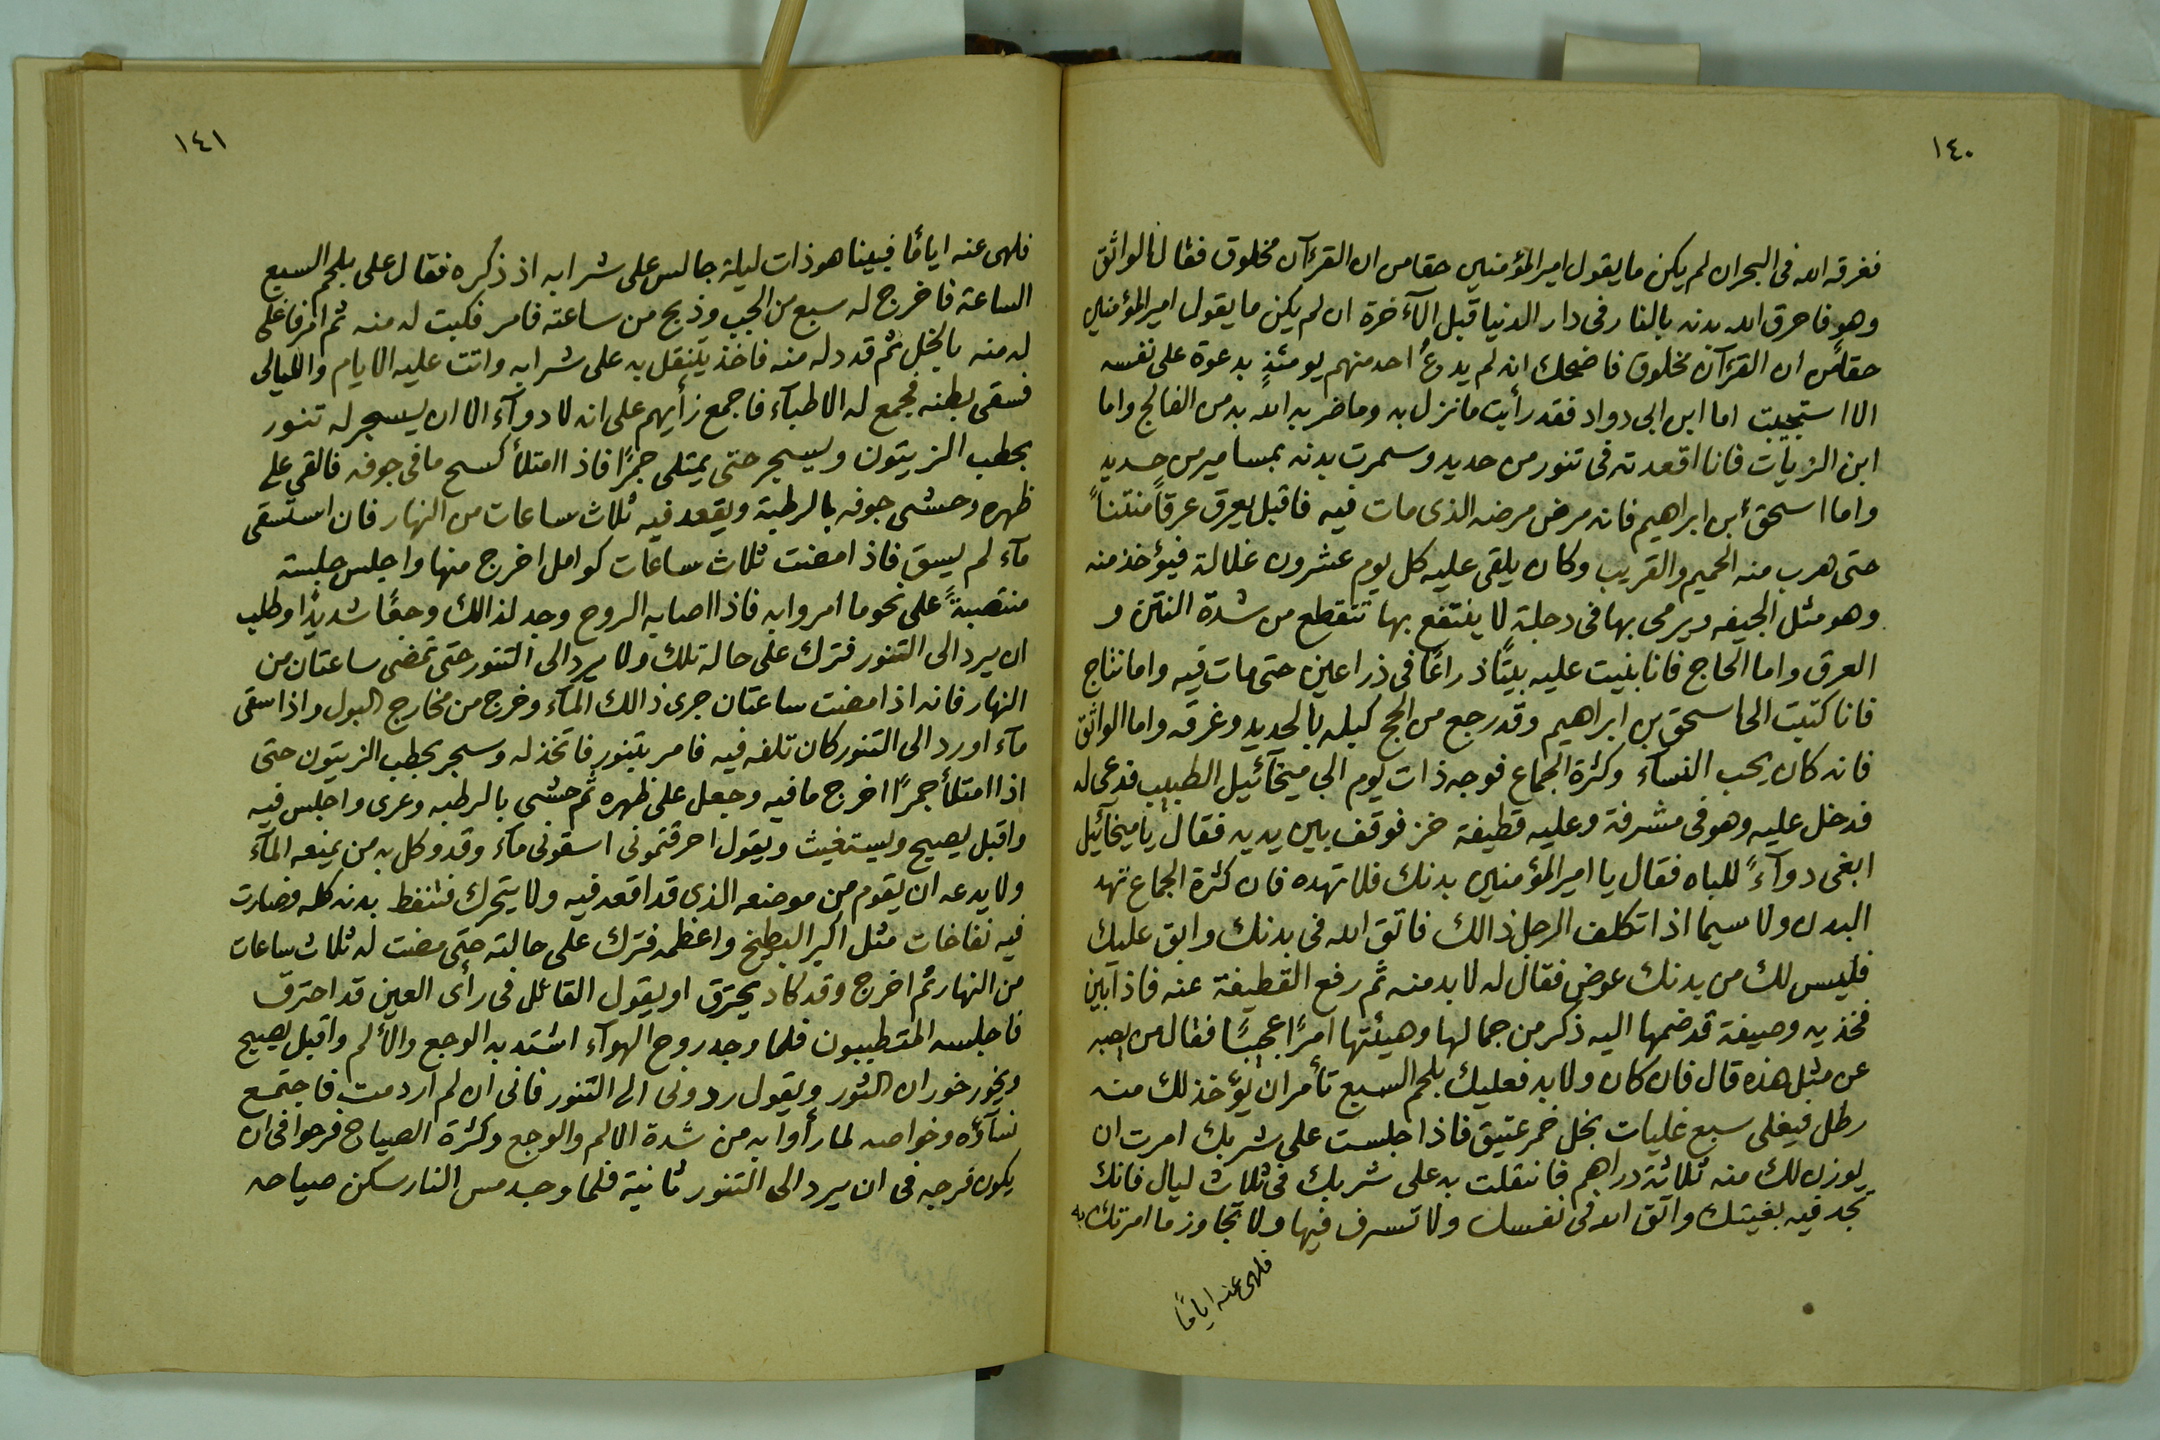 ١٤٠
فغرقه الله فى البحر ان لم يكن ما يقول امير المؤمنين حقا من ان القرءآن مخلوق فقال الواثق
وهو فاحرق الله بدنه بالنار فى دار الدنيا قبل الآخرة ان لم يكن ما يقول امير المؤمنين
حقاً من ان القرءآن مخلوق فاضحك انه لم يدعُ احد منهم يومئذٍ بدعوة على نفسه
الا استجيبت اما ابن ابى دواد فقد رأيت ما نزل به وما ضربه الله به من الفالج واما
ابن الزيات فانا اقعدته فى تنور من حديد وسمرت بدنه بمسامير من حديد
واما اسحق بن ابراهيم فانه مرض مرضه الذى مات فيه فاقبل يعرق عرقاً منتناً
حتى هرب منه الحميم والقريب وكان يلقى عليه كل يوم عشرون غلالة فيؤخذ منه
وهو مثل الجيفه ويرمى بها فى دجلة لا ينتفع بها تتقطع من شدة النتن و
العرق واما الحاج فانا بنيت عليه بيتًا ذراعًا فى ذراعين حتى مات فيه واما نتاج
فانا كتبت الى اسحق بن ابراهيم وقد رجع من الحج كبله بالحديد وغرقه واما الواثق
فانه كان يحب النسآء وكثرة الجماع فوجه ذات يوم الى ميخآئيل الطبيب فدعى له
فدخل عليه وهو فى مشرفة وعليه قطيفة خز فوقف بين يديه فقال يا ميخآئيل
ابغى دوآءً للباه فقال يا امير المؤمنين بدنك فلا تهده فان كثرة الجماع تهد
البدن ولا سيما اذا تكلف الرجل ذالك فاتق الله فى بدنك وابق عليك
فليس لك من بدنك عوض فقال له لا بد منه ثم رفع القطيفة عنه فاذا بين
فخذيه وصيفة قد ضمها اليه ذكر من جمالها وهيئتها امرًا عجيبًا فقال من يصبر
عن مثل هذه قال فان كان ولا بد فعليك بلحم السبع تأمر ان يؤخذ لك منه
رطل فيغلى سبع غليات بخل خمر عتيق فاذا جلست على شربك امرت ان
يوزن لك منه ثلاثة دراهم فانتقلت به على شربك فى ثلاث ليال فانك
تجد فيه بغيتك واتق الله فى نفسك ولا تسرف فيها ولا تجاوز ما امرتك به
فلهى عنه ايامًا
١٤١
فلهى عنه ايامًا فبينا هو ذات ليلة جالس على شرابه اذ ذكره فقال على بلحم السبع
الساعة فاخرج له سبع من الجب وذبح من ساعته فامر فكبت له منه ثم امر فاغلى
له منه بالخل ثم قدد له منه فاخذ يتنقل به على شرابه واتت عليه الايام والليالى
فسقى بطنه فجمع له الاطبآء فاجمع رأيهم على انه لا دوآء الا ان يسجر له تنور
بحطب الزيتون ويسجر حتى يمتلى جمرًا فاذا امتلأ كسح ما فى جوفه فالقى على
ظهره وحشى جوفه بالرطبة ويقعد فيه ثلاث ساعات من النهار فان استسقى
مآء لم يسق فاذا مضت ثلاث ساعات كوامل اخرج منها واجلس جلسته
منتصبةً على نحو ما امروا به فاذا اصابه الروح وجد لذالك وجعًا شديدًا وطلب
ان يرد الى التنور فترك على حالة تلك ولا يرد الى التنور حتى تمضى ساعتان من
النهار فانه اذا مضت ساعتان جرى ذالك المآء وخرج من مخارج البول واذا سقى
مآء او رد الى التنور كان تلفه فيه فامر بتنور فاتخذ له وسجر بحطب الزيتون حتى
اذا امتلأ جمرًا اخرج ما فيه وجعل على ظهره ثم حشى بالرطبه وعرى واجلس فيه
واقبل يصيح ويستغيث ويقول احرقتمونى اسقونى مآء وقد وكل به من يمنعه المآء
ولا يدعه ان يقوم من موضعه الذى قد اقعد فيه ولا يتحرك فتنفط بدنه كله فصارت
فيه نفاخات مثل اكبر البطيخ واعظمه فترك على حالته حتى مضت له ثلاث ساعات
من النهار ثم اخرج وقد كاد يحترق او يقول القائل فى رأى العين قد احترق
فاجلسه المتطيبون فلما وجد روح الهوآء اشتد به الوجع والألم واقبل يصيح
ويخور خوران الثور ويقول ردونى الى التنور فانى ان لم ارد مت فاجتمع
نسآؤه وخواصه لما رأوا به من شدة الالم والوجع وكثرة الصياح فرجوا فى ان
يكون فرجه فى ان يرد الى التنور ثانية فلما وجد مس النار سكن صياحه